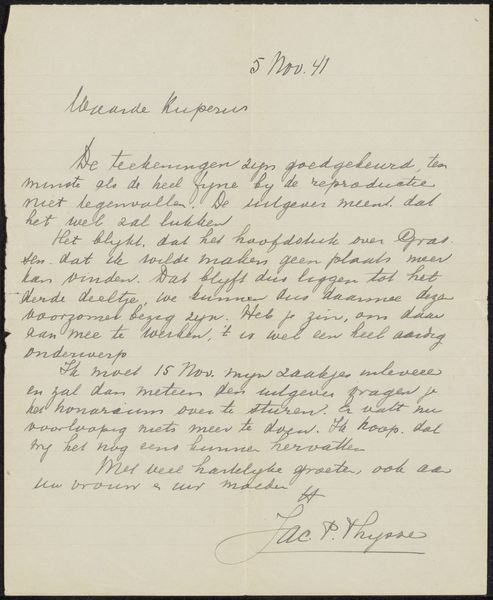 5 Nov. 41
Waarde Kuperus
De teekeningen zijn goedgekeurd, ten
minste als de heel fijne bij de reproductie
niet tegenvallen. De uitgever meent dat
het wel zal lukken
Het blijkt, dat het hoofdstuk over Gras
sen, dat ik wilde maken geen plaats meer
kan vinden. Dat blijft dus liggen tot het
derde deeltje, we kunnen dus daarmee dezen
voorzomer bezig zijn. Heb je zin, om daar
aan mee te werken, 't is wel een heel aardig
onderwerp
Ik moet 15 Nov. mijn zaakjes inleveren
en zal dan meteen den uitgever vragen je
het honorarium over te sturen. Er valt nu
voorloopig niets meer te doen. Ik hoop, dat
wij het nog eens kunnen hervatten
Met veel hartelijke groeten, ook aan
uw vrouw en uw moeder
tt
Jac. P. Thysse